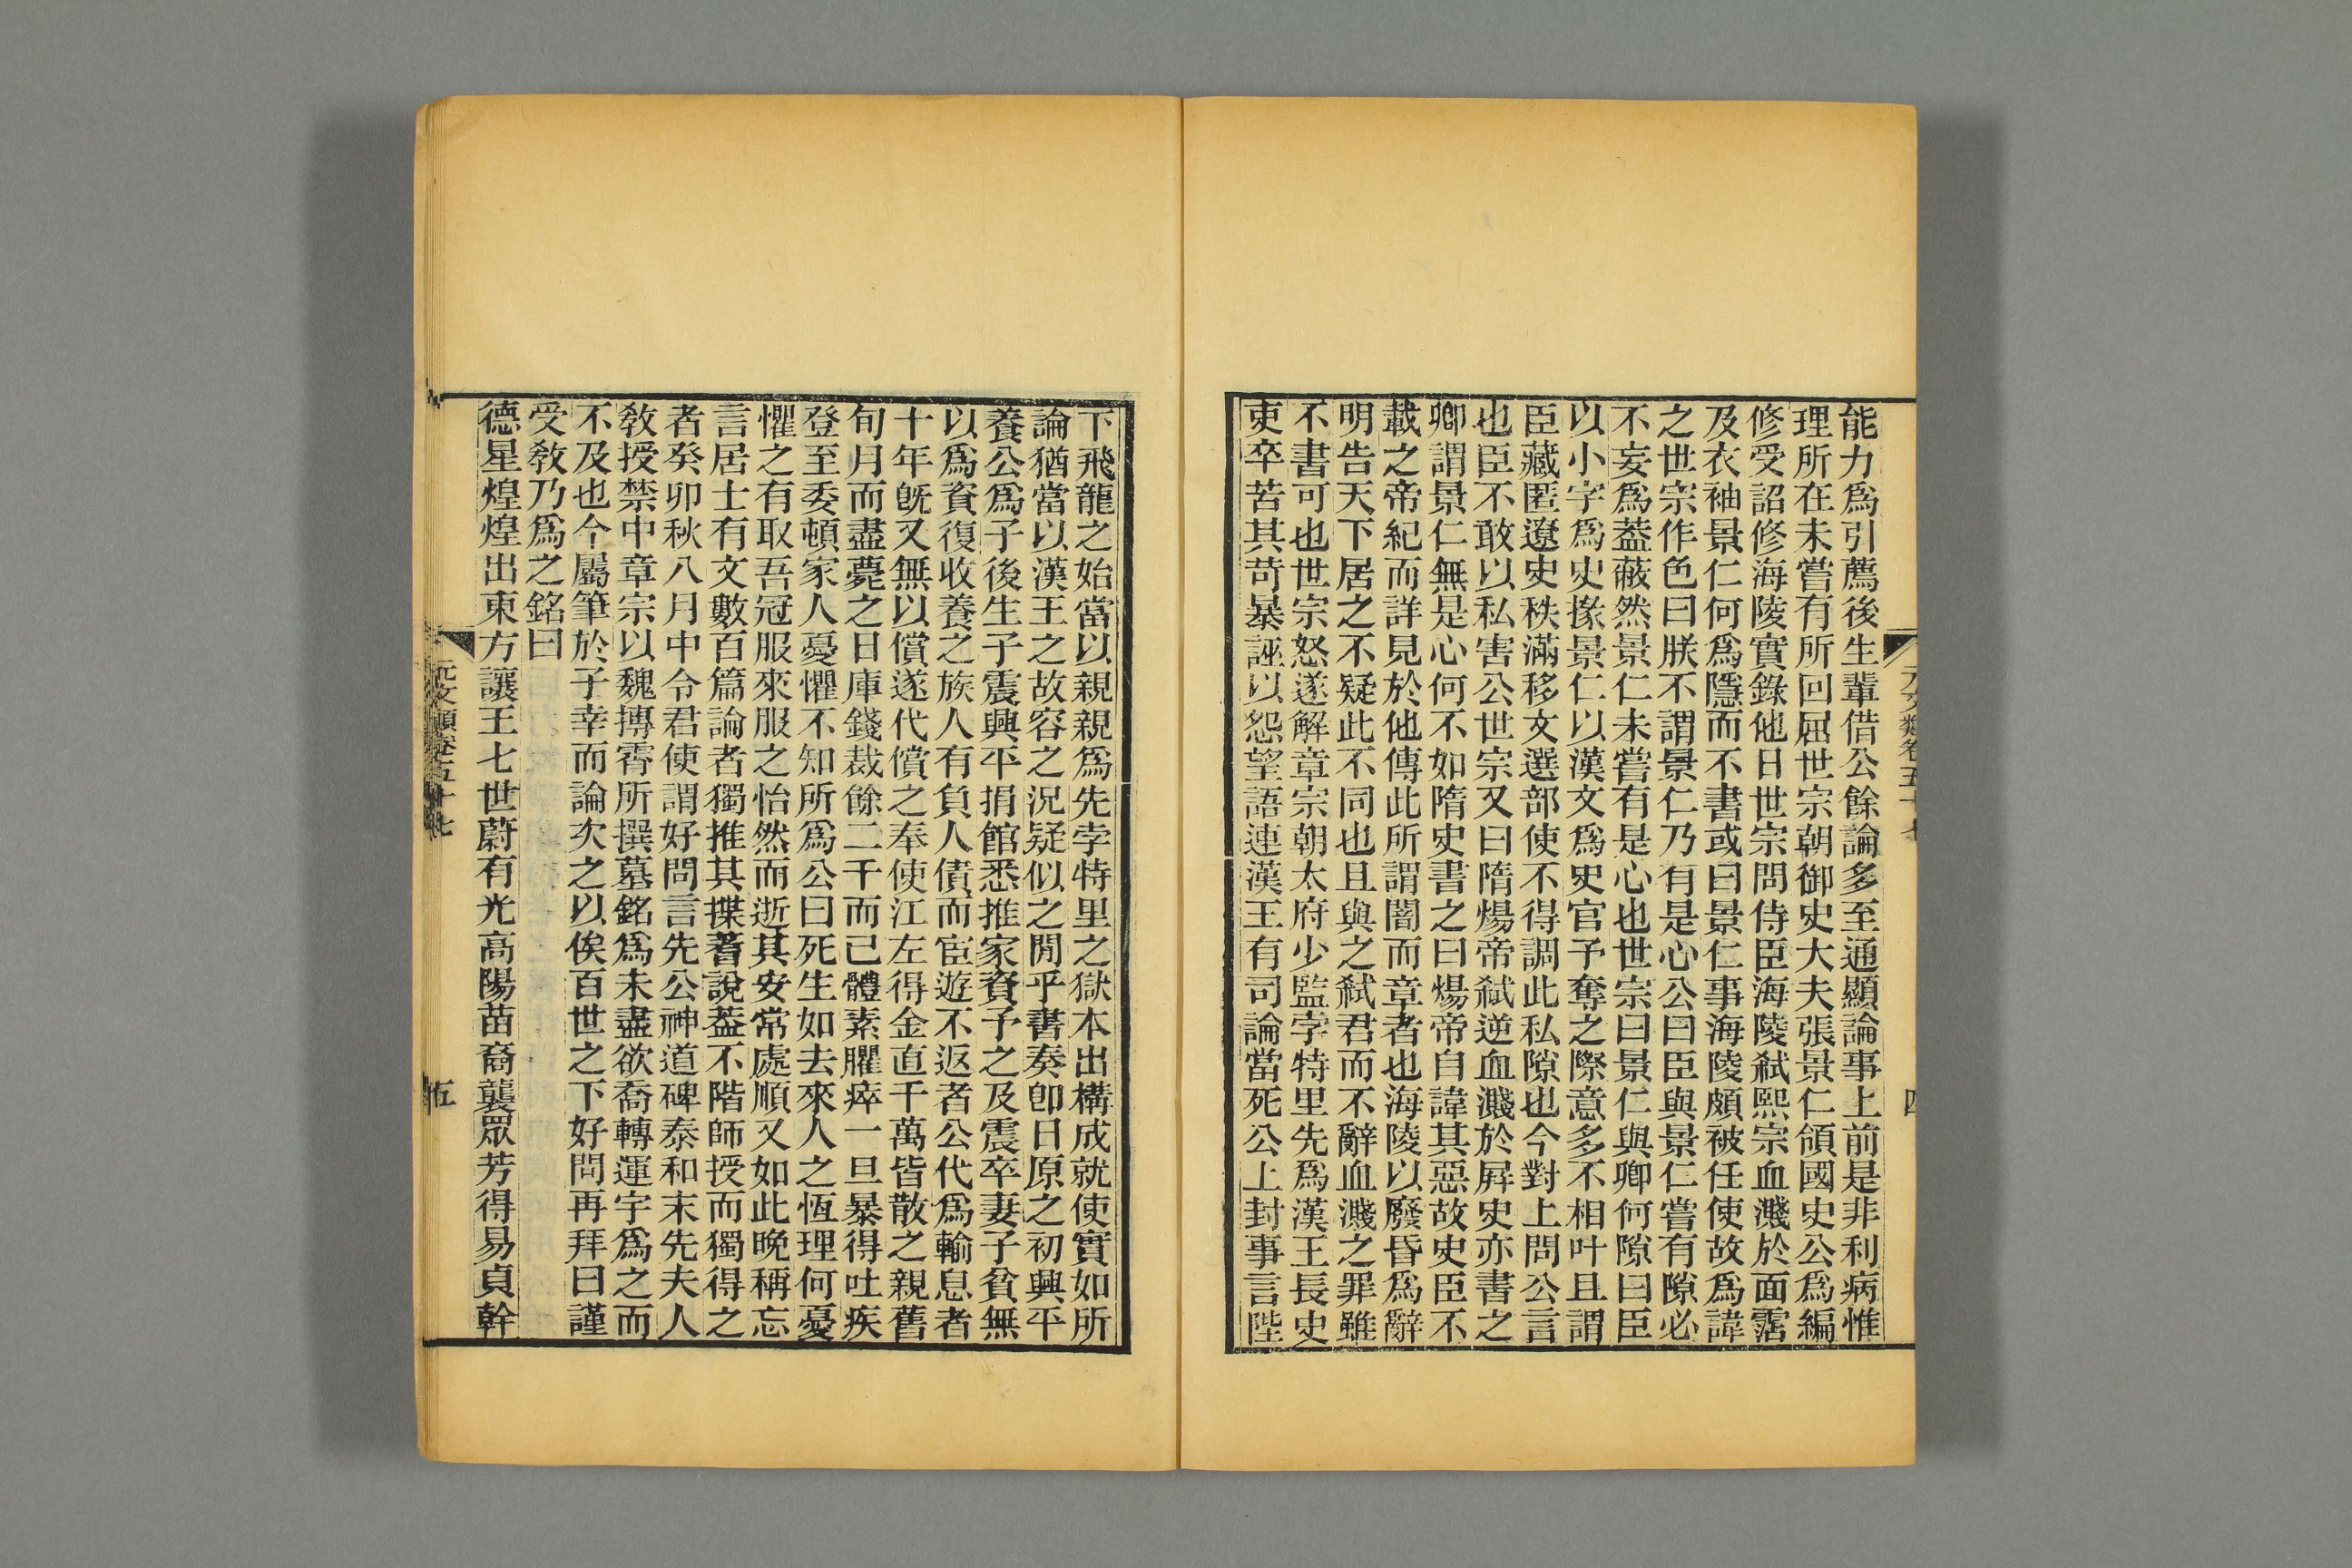 元文類卷五十七
四
能力爲引薦後生輩借公餘論多至通顯論事上前是非利病惟
理所在未嘗有所回屈世宗朝御史大夫張景仁領國史公爲編
修受詔修海陵實錄他日世宗問侍臣海陵弑熙宗血濺於面霑
及衣袖景仁何爲隱而不書或曰景仁事海陵頗被任使故爲諱
之世宗作色曰朕不謂景仁乃有是心公曰臣與景仁嘗有隙必
不妄爲葢蔽然景仁未嘗有是心也世宗曰景仁與卿何隙曰臣
以小字爲史掾景仁以漢文爲史官予奪之際意多不相叶且謂
臣藏匿遼史秩滿移文選部使不得調此私隙也今對上問公言
也臣不敢以私害公世宗又曰隋煬帝弑逆血濺於屛史亦書之
卿謂景仁無是心何不如隋史書之曰煬帝自諱其惡故史臣不
載之帝紀而詳見於他傳此所謂闇而章者也海陵以廢昏爲辭
明告天下居之不疑此不同也且與之弑君而不辭血濺之罪雖
不書可也世宗怒遂解章宗朝太府少監孛特里先爲漢王長史
吏卒苦其苛暴誣以怨望語連漢王有司論當死公上封事言陛
下飛龍之始當以親親爲先孛特里之獄本出構成就使實如所
論猶當以漢王之故容之況疑似之閒乎書奏卽日原之初興平
養公爲子後生子震興平捐館悉推家資予之及震卒妻子貧無
以爲資復收養之族人有負人債而宦遊不返者公代爲輸息者
十年旣又無以償遂代償之奉使江左得金直千萬皆散之親舊
旬月而盡薨之日庫錢裁餘二千而已體素臞瘁一旦暴得吐疾
登至委頓家人憂懼不知所爲公曰死生如去來人之恆理何憂
懼之有取吾冠服來服之怡然而逝其安常處順又如此晚稱忘
言居士有文數百篇論者獨推其揲蓍說葢不階師授而獨得之
者癸卯秋八月中令君使謂好問言先公神道碑泰和末先夫人
敎授禁中章宗以魏摶霄所撰墓銘爲未盡欲喬轉運宇爲之而
不及也今屬筆於子幸而論次之以俟百世之下好問再拜曰謹
受敎乃爲之銘曰
德星煌煌出東方讓王七世蔚有光高陽苗裔襲眾芳得易貞幹
元文類卷五十七
五